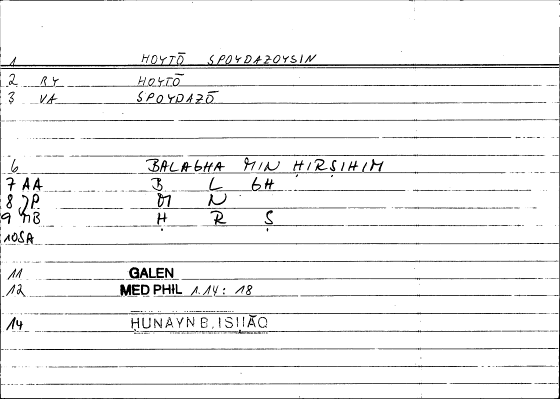 1 HOYTŌ SPOYDAZOYSIN
2 RY HOYTŌ
3 VA SPOYDAZŌ
6 BALAGHA MIN ḤIRṢIHIM
7 AA B L GH
8 JP M N
9 MB Ḥ R Ṣ
10 SA
11 GALEN
12 MED PHIL 1.14: 18
14 HUNAYN B. ISHĀQ